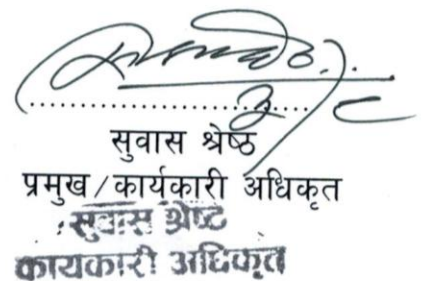 ..............................
सुवास श्रेष्ठ
प्रमुख/कार्यकारी अधिकृत
सुवास श्रेष्ट
कायकारी अधिकृत